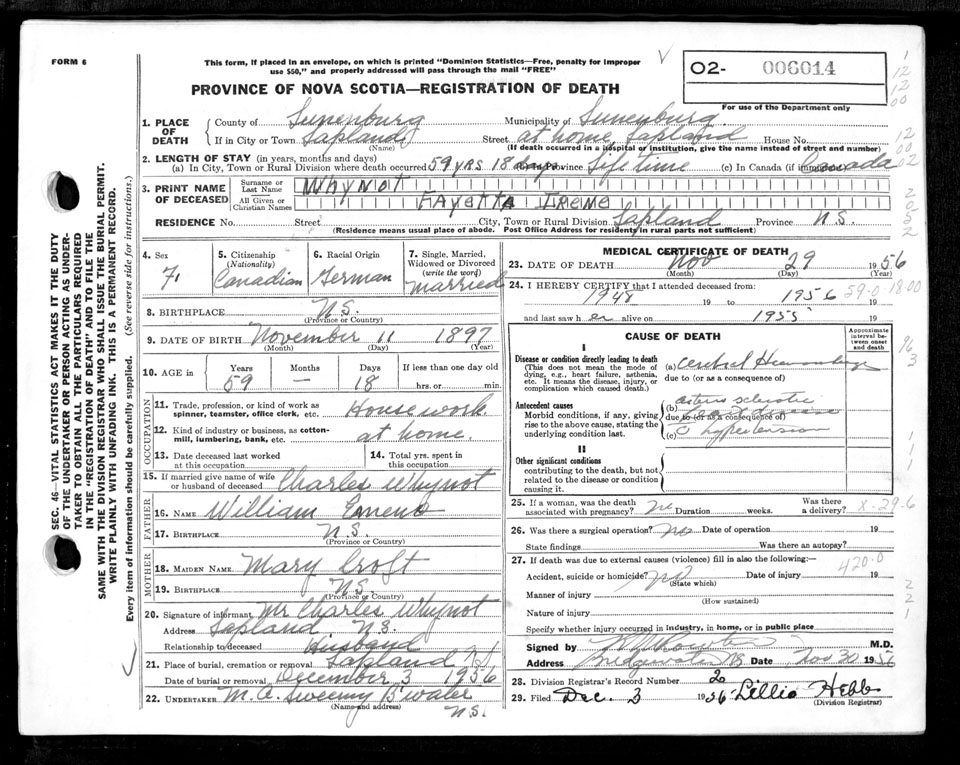 FORM 6
This form, if placed in an envelope, on which is printed "Dominion Statistics—Free, penalty for improper
use $50," and properly addressed will pass through the mail "FREE"
PROVINCE OF NOVA SCOTIA—REGISTRATION OF DEATH
O2- 006014
For use of the Department only
1. PLACE OF DEATH
County of Lunenburg Municipality of Lunenburg
If in City or Town Lapland (Name) Street at home, Lapland House No.
(If death occurred in a hospital or institution, give the name instead of street and number)
2. LENGTH OF STAY (in years, months and days)
(a) In City, Town or Rural Division where death occurred 59 yrs 18 days Province Life time (c) In Canada (if immigrant) Canada
3. PRINT NAME OF DECEASED
Surname or Last Name Whynot
All Given or Christian Names Fayetta Irene
RESIDENCE No. Street City, Town or Rural Division Lapland Province N.S.
(Residence means usual place of abode. Post Office Address for residents in rural parts not sufficient)
4. Sex F.
5. Citizenship (Nationality) Canadian
6. Racial Origin German
7. Single, Married, Widowed or Divorced (write the word) Married
8. BIRTHPLACE N.S.
(Province or Country)
9. DATE OF BIRTH November 11 1897
(Month) (Day) (Year)
10. AGE in Years 59 Months — Days 18 If less than one day old hrs. or min.
OCCUPATION
11. Trade, profession, or kind of work as spinner, teamster, office clerk, etc. Housework
12. Kind of industry or business, as cotton-mill, lumbering, bank, etc. at home.
13. Date deceased last worked at this occupation
14. Total yrs. spent in this occupation
15. If married give name of wife or husband of deceased Charles Whynot
FATHER
16. NAME William
17. BIRTHPLACE N.S.
(Province or Country)
MOTHER
18. MAIDEN NAME Mary Croft
19. BIRTHPLACE N.S.
(Province or Country)
20. Signature of informant Mr Charles Whynot
Address Lapland N.S.
Relationship to deceased Husband
21. Place of burial, cremation or removal Lapland N.S.
Date of burial or removal December 3 1956
22. UNDERTAKER M.A. Sweeny B'water
(Name and address) N.S.
MEDICAL CERTIFICATE OF DEATH
23. DATE OF DEATH Nov 29 1956
(Month) (Day) (Year)
24. I HEREBY CERTIFY that I attended deceased from:
1948 19 to 1956 19
59-0-18-00
and last saw h er alive on 1955 19
CAUSE OF DEATH
Approximate interval between onset and death
I
Disease or condition directly leading to death
(This does not mean the mode of dying, e.g., heart failure, asthenia, etc. It means the disease, injury, or complication which caused death.)
(a) Cerebral Hemorrhage
due to (or as a consequence of)
Antecedent causes
Morbid conditions, if any, giving rise to the above cause, stating the underlying condition last.
(b) arterio sclerotic
heart disease
due to (or as a consequence of)
(c) hypertension
II
Other significant conditions
contributing to the death, but not related to the disease or condition causing it.
25. If a woman, was the death associated with pregnancy? no Duration weeks. Was there a delivery?
X-29-6
26. Was there a surgical operation? no Date of operation 19
State findings Was there an autopsy?
27. If death was due to external causes (violence) fill in also the following:—
420.0
Accident, suicide or homicide? no Date of injury 19
(State which)
Manner of injury
(How sustained)
Nature of injury
Specify whether injury occurred in industry, in home, or in public place
Signed by M.D.
Address Bridgewater NS Date Nov 30 1956
28. Division Registrar's Record Number 2
29. Filed Dec. 3 1956 Lillie Hebb
(Division Registrar)
SEC. 46—VITAL STATISTICS ACT MAKES IT THE DUTY
OF THE UNDERTAKER OR PERSON ACTING AS UNDER-
TAKER TO OBTAIN ALL THE PARTICULARS REQUIRED
IN THE "REGISTRATION OF DEATH" AND TO FILE THE
SAME WITH THE DIVISION REGISTRAR WHO SHALL ISSUE THE BURIAL PERMIT.
WRITE PLAINLY WITH UNFADING INK. THIS IS A PERMANENT RECORD.
Every item of information should be carefully supplied. (See reverse side for instructions.)